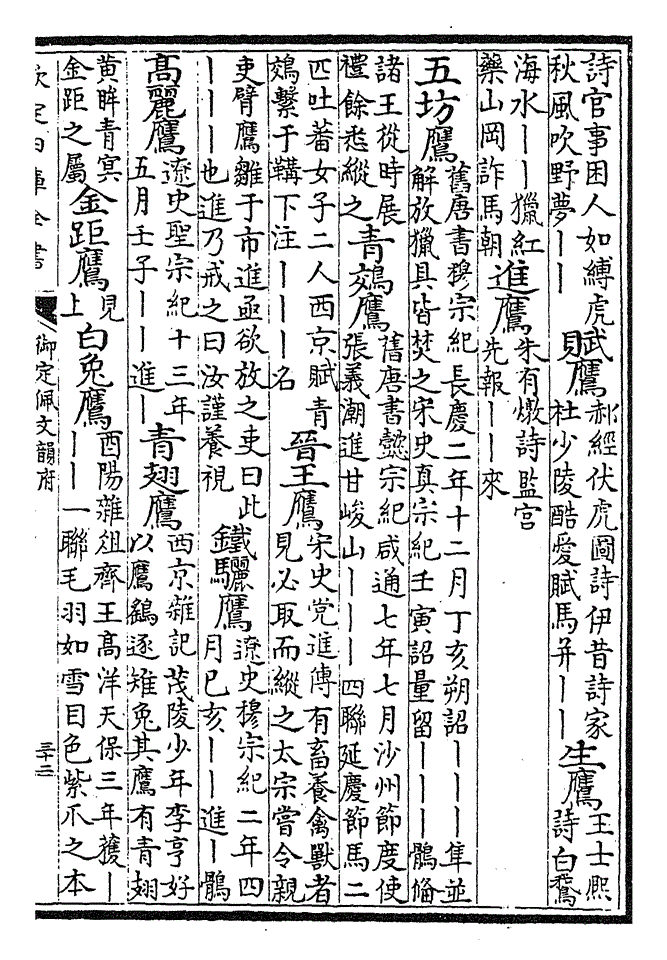 詩官事困人如縛虎
秋風吹野夢丨丨
賦鷹
郝經伏虎圖詩伊昔詩家
杜少陵酷愛賦馬并丨丨
生鷹
王士熙
詩白鵞
海水丨丨獵紅
藥山岡詐馬朝
進鷹
朱有燉詩監宮
先報丨丨來
五坊鷹
舊唐書穆宗紀長慶二年十二月丁亥朔詔丨丨丨隼並
解放獵具皆焚之宋史真宗紀壬寅詔量留丨丨丨鶻備
諸王從時展
禮餘悉縱之
青鵁鷹
舊唐書懿宗紀咸通七年七月沙州節度使
張義潮進甘峻山丨丨丨四聯延慶節馬二
匹吐蕃女子二人西京賦青
鵁繫于韝下注丨丨丨名
晉王鷹
宋史党進傳有畜養禽獸者
見必取而縱之太宗嘗令親
吏臂鷹雛于市進亟欲放之吏曰此
丨丨丨也進乃戒之曰汝謹養視
鐵驪鷹
遼史穆宗紀二年四
月己亥丨丨進丨鶻
高麗鷹
遼史聖宗紀十三年
五月壬子丨丨進丨
青翅鷹
西京雜記茂陵少年李亨好
以鷹鷂逐雉兔其鷹有青翅
黃眸青冥
金距之屬
金距鷹
見
上
白兔鷹
酉陽雜俎齊王高洋天保三年獲丨
丨丨一聯毛羽如雪目色紫爪之本
欽定四庫全書
御定佩文韻府
三十二